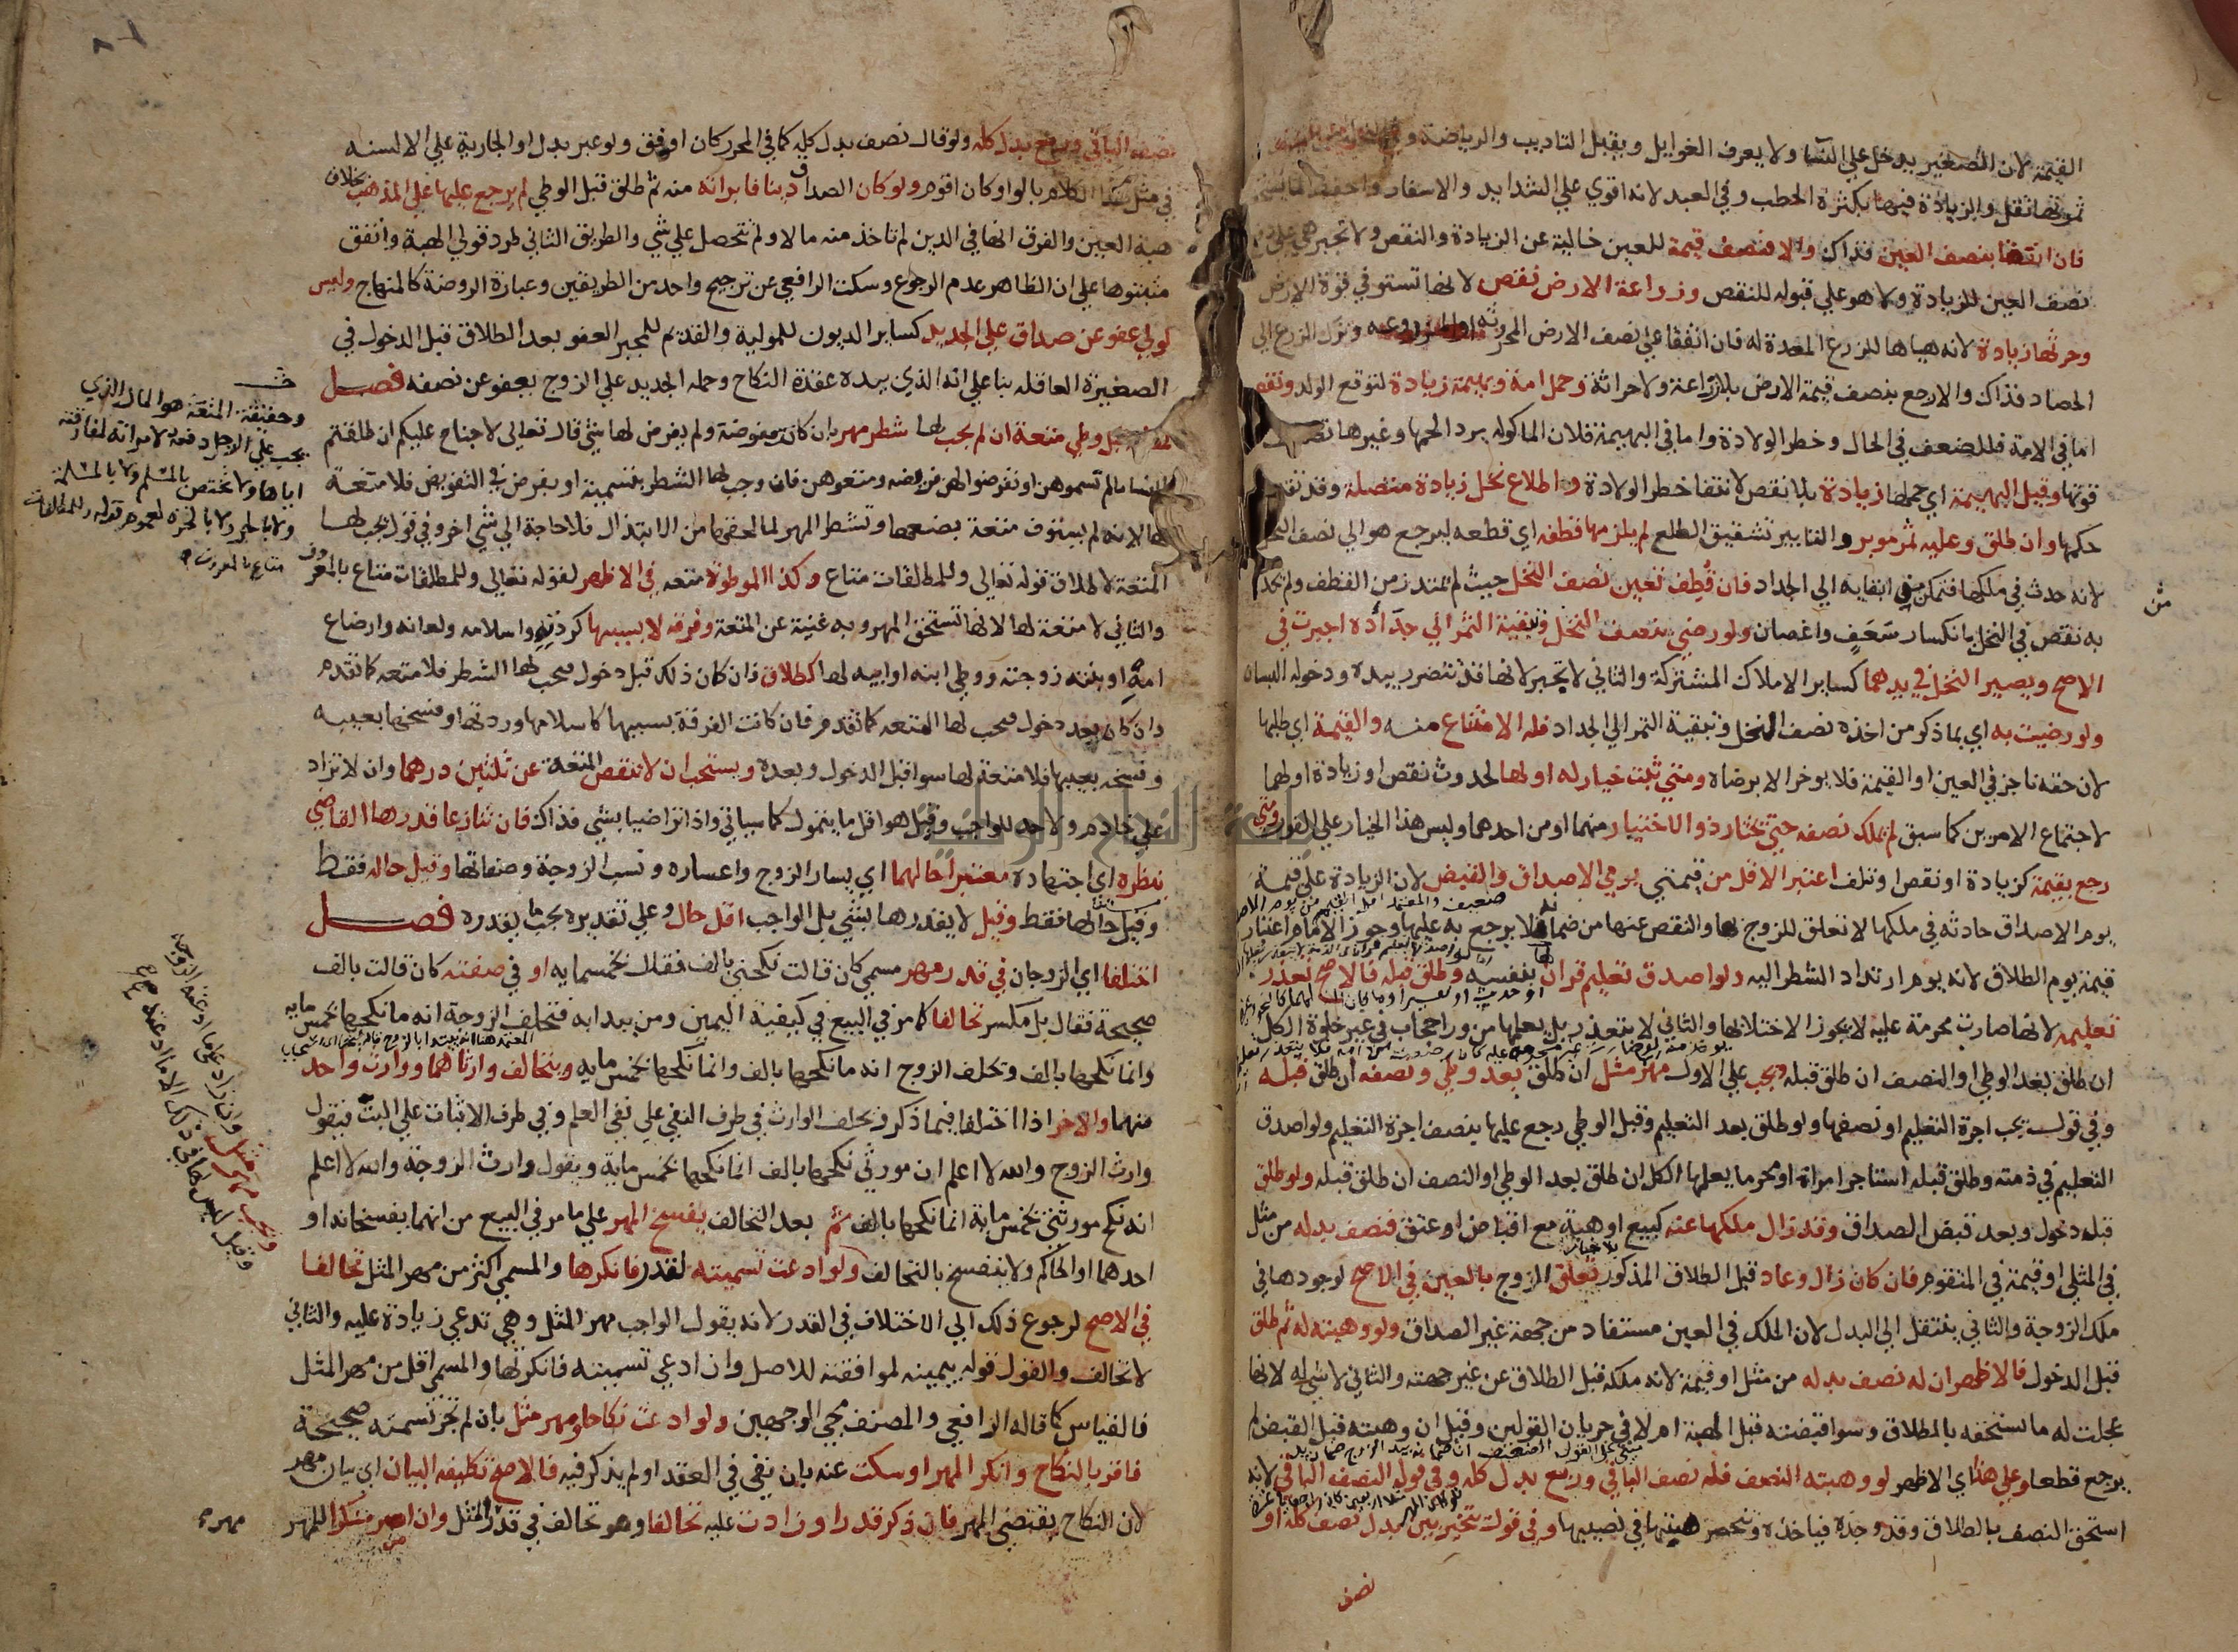 القيمة لان الصغير يدخل علي النسا ولا يعرف الغوايل ويقبل التاديب والرياضة وفي
ثمرتها تقل والزيادة فيها بكثرة الحطب وفي العبد لانه اقوي علي الشدايد والاسفار واحفظ لما
فان اتفقا بنصف العين فذاك والا فنصف قيمة للعين خالية عن الزيادة والنقص ولا تجبر هي علي
نصف العين للزيادة ولا هو علي قبوله للنقص وزراعة الارض نقص لانها تستوفي قوة الارض
وحرثها زيادة لانه هياها للزرع المعدة له فان اتفقا علي نصف الارض المحروثة او المزروعه وترك الزرع الي
الحصاد فذاك والا رجع بنصف قيمة الارض بلا زراعة ولا حراثة وحمل امة وبهيمة زيادة لتوقع الولد ونقص
اما في الامة فللضعف في الحال وخطر الولادة واما في البهيمة فلان الماكوله يرد الحمها وغيرها
قوتها وقيل البهيمة اي حملها زيادة بلا نقص لانتفا خطر الولادة واطلاع نخل زيادة متصلة وقد تقدم
حكمها وان طلق وعليه ثمر موبر والتابير تشقيق الطلع لم يلزمها قطفه اي قطعه ليرجع هو الي نصف النخل
لانه حدث في ملكها فتمكن من ابقايه الي الجداد فان قطف تعين نصف النخل حيث لم تمتد زمن القطف ولم يحدث
ثمن
به نقص في النخل بانكسار سعف واغصان ولو رضي بنصف النخل وتبقية الثمر الي جداده اجبرت في
الاصح ويصير النخل في يدهما كساير الاملاك المشتركة والثاني لا تجبر لانها قد تتضرر بيده ودخوله البستان
ولو رضيت به اي بما ذكر من اخذه نصف النخل وتبقية الثمر الي الجداد فله الامتناع منه والقيمة اي طلبها
لان حقه ناجز في العين او القيمة فلا يوخر الا برضاه ومتي ثبت خيار له او لها لحدوث نقص او زيادة او لهما
لاجتماع الامرين كما سبق لم يملك نصفه حتي يختار ذو الاختيار منهما او من احدهما وليس هذا الخيار علي الفور ومتي
رجع بقيمة كزيادة او نقص او تلف اعتبر الاقل من قيمتي يومي الاصداق والقبض لان الزيادة علي قيمة
يوم الاصداق حادثه في ملكها لا تعلق للزوج بها والنقص عنها من ضمانه فلا يرجع به عليها وجوز الامام اعتبار
قيمة يوم الطلاق لانه يوم ارتداد الشطر اليه ولو اصدق تعليم قران بنفسه وطلق قبله فالاصح تعذر
تعليمه لانها صارت محرمة عليه لا يجوز الاختلا بها والثاني لا يتعذر بل يعلمها من ورا حجاب في غير خلوة الكل
ان طلق بعد الوطي او النصف ان طلق قبله ويجب علي الاول مهر مثل ان طلق بعد وطي ونصفه ان طلق قبله
وفي قول يجب اجرة التعليم او نصفها ولو طلق بعد التعليم وقبل الوطي رجع عليها بنصف اجرة التعليم ولو اصدق
التعليم في ذمته وطلق قبله استاجر امراة او محرما يعلمها الكل ان طلق بعد الوطي او النصف ان طلق قبله ولو طلق
قبله دخول وبعد قبض الصداق وقد زال ملكها عنه كبيع او هبة مع اقباض او عتق فنصف بدله من مثل
في المثلي او قيمة في المتقوم فان كان زال وعاد قبل الطلاق المذكور تعلق الزوج بالعين في الاصح لوجودها في
ملك الزوجة والثاني ينتقل الي البدل لان الملك في العين مستفاد من جهة غير الصداق ولو وهبته له ثم طلق
قبل الدخول فالاظهر ان له نصف بدله من مثل او قيمة لانه ملكه قبل الطلاق عن غير جهته والثاني لا شي له لانها
عجلت له ما يستحقه بالطلاق وسوا قبضته قبل الهبة ام لا في جريان القولين وقيل ان وهبته قبل القبض لم
يرجع قطعا وعلي هذا اي الاظهر لو وهبته النصف فله نصف الباقي وربع بدل كله وفي قول النصف الباقي لانه
استحق النصف بالطلاق وقد وجده فياخذه وتنحصر هبتها في نصيبها وفي قول يتخير بين بدل نصف كله او
نصف
نصف الباقي وربع بدل كله ولو قال نصف بدل كله كما في المحرر كان اوفق ولو عبر بدل او الجارية علي الالسنه
في مثل هذا الكلام بالواو كان اقوم ولو كان الصداق دينا فابراته منه ثم طلق قبل الوطي لم يرجع عليها علي المذهب بخلاف
هبة العين والفرق انها في الدين لم تاخذ منه مالا ولم تتحصل علي شي والطريق الثاني طرد قولي الهبة واتفق
مثبتوها علي ان الظاهر عدم الرجوع وسكت الرافعي عن ترجيح واحد من الطريقين وعبارة الروضة كالمنهاج وليس
لولي عفو عن صداق علي الجديد كساير الديون للمولية والقديم للمجبر العفو بعد الطلاق قبل الدخول في
الصغيرة العاقله بنا علي انه الذي بيده عقدة النكاح وحمله الجديد علي الزوج يعفو عن نصفه فصل
لمطلقة قبل وطي متعة ان لم يجب لها شطر مهر بان كانت مفوضة ولم يفرض لها شي قال تعالي لا جناح عليكم ان طلقتم
النسا ما لم تمسوهن او تفرضوا لهن فريضه ومتعوهن فان وجب لها الشطر بتسمية او بفرض في التفويض فلا متعة
لها لانه لم يستوف منفعة بضعها وتشطر المهر لما لحقها من الابتذال فلا حاجة الي شي اخر وفي قول يجب لها
المتعة لاطلاق قوله تعالي وللمطلقات متاع وكذا الموطوة متعه في الاظهر لقوله تعالي وللمطلقات متاع بالمعروف
والثاني لا متعة لها لانها تستحق المهر وبه غنية عن المتعة وفرقه لا بسببها كردته واسلامه ولعانه وارضاع
امه او بنته زوجته ووطي ابنه او ابيه لها كطلاق فان كان ذلك قبل دخول وجب لها الشطر فلا متعه كما تقدم
وان كان بعد دخول وجب لها المتعه كما تقدم فان كانت الفرقة بسببها كاسلامها وردتها وفسخها بعيبه
وفسخه بعيبها فلا متعة لها سوا قبل الدخول وبعده ويستحب ان لا تنقص المتعة عن ثلثين درهما وان لا تزاد
علي خادم ولا حد للواجب وقيل هو اقل ما يتمول كما سياتي واذا تراضيا بشي فذاك فان تنازعا قدرها القاضي
بنظره اي اجتهاده معتبرا حالهما اي يسار الزوج واعساره ونسب الزوجة وصفاتها وقيل حاله فقط
وقيل حالها فقط وقيل لا يقدرها بشي بل الواجب اقل مال وعلي تقديره يجب ما يقدره فصل
اختلفا اي الزوجان في قدر مهر مسمي كان قالت نكحتني بالف فقال بخمسمايه او في صفته كان قالت بالف
صحيحة فقال بل مكسر تحالفا كما مر في البيع في كيفية اليمين ومن يبدا به فتحلف الزوجة انه ما نكحها بخمس مايه
وانما نكحها بالف ويحلف الزوج انه ما نكحها بالف وانما نكحها بخمس مايه ويتحالف وارثاهما ووارث واحد
منهما والاخر اذا اختلفا فيما ذكر ويحلف الوارث في طرف النفي علي نفي العلم وفي طرف الاثبات علي البت فيقول
وارث الزوج والله لا اعلم ان مورثي نكحها بالف انما نكحها بخمس ماية ويقول وارث الزوجة والله لا اعلم
انه نكح مورثتي بخمس ماية انما نكحها بالف ثم بعد التحالف يفسخ المهر علي ما مر في البيع من انهما يفسخانه او
احدهما او الحاكم ولا ينفسخ بالتحالف ولو ادعت تسميته لقدر فانكرها والمسمي اكثر من مهر المثل تحالفا
في الاصح لرجوع ذلك الي الاختلاف في القدر لانه يقول الواجب مهر المثل وهي تدعي زيادة عليه والثاني
لا تحالف والقول قوله بيمينه لموافقته للاصل وان ادعي تسميته فانكرتها والمسمي اقل من مهر المثل
فالقياس كما قاله الرافعي والمصنف مجي الوجهين ولو ادعت نكاحا ومهر مثل بان لم تجز تسمية صحيحة
فاقر بالنكاح وانكر المهر او سكت عنه بان نفي في العقد او لم يذكر فيه فالاصح تكليفه البيان اي بيان مهر
لان النكاح يقتضي المهر فان ذكر قدرا وزادت عليه تحالفا وهو تحالف في قدر المثل وان اصر منكرا للمهر
وحقيقة المتعة هو المال الذي
يجب علي الرجل دفعه لامراته لمفارقته
اياها ولا تختص بالمسلم ولا بالمسلمة
ولا بالحر ولا بالحرة لعموم قوله وللمطلقات
متاع بالمعروف
مهره